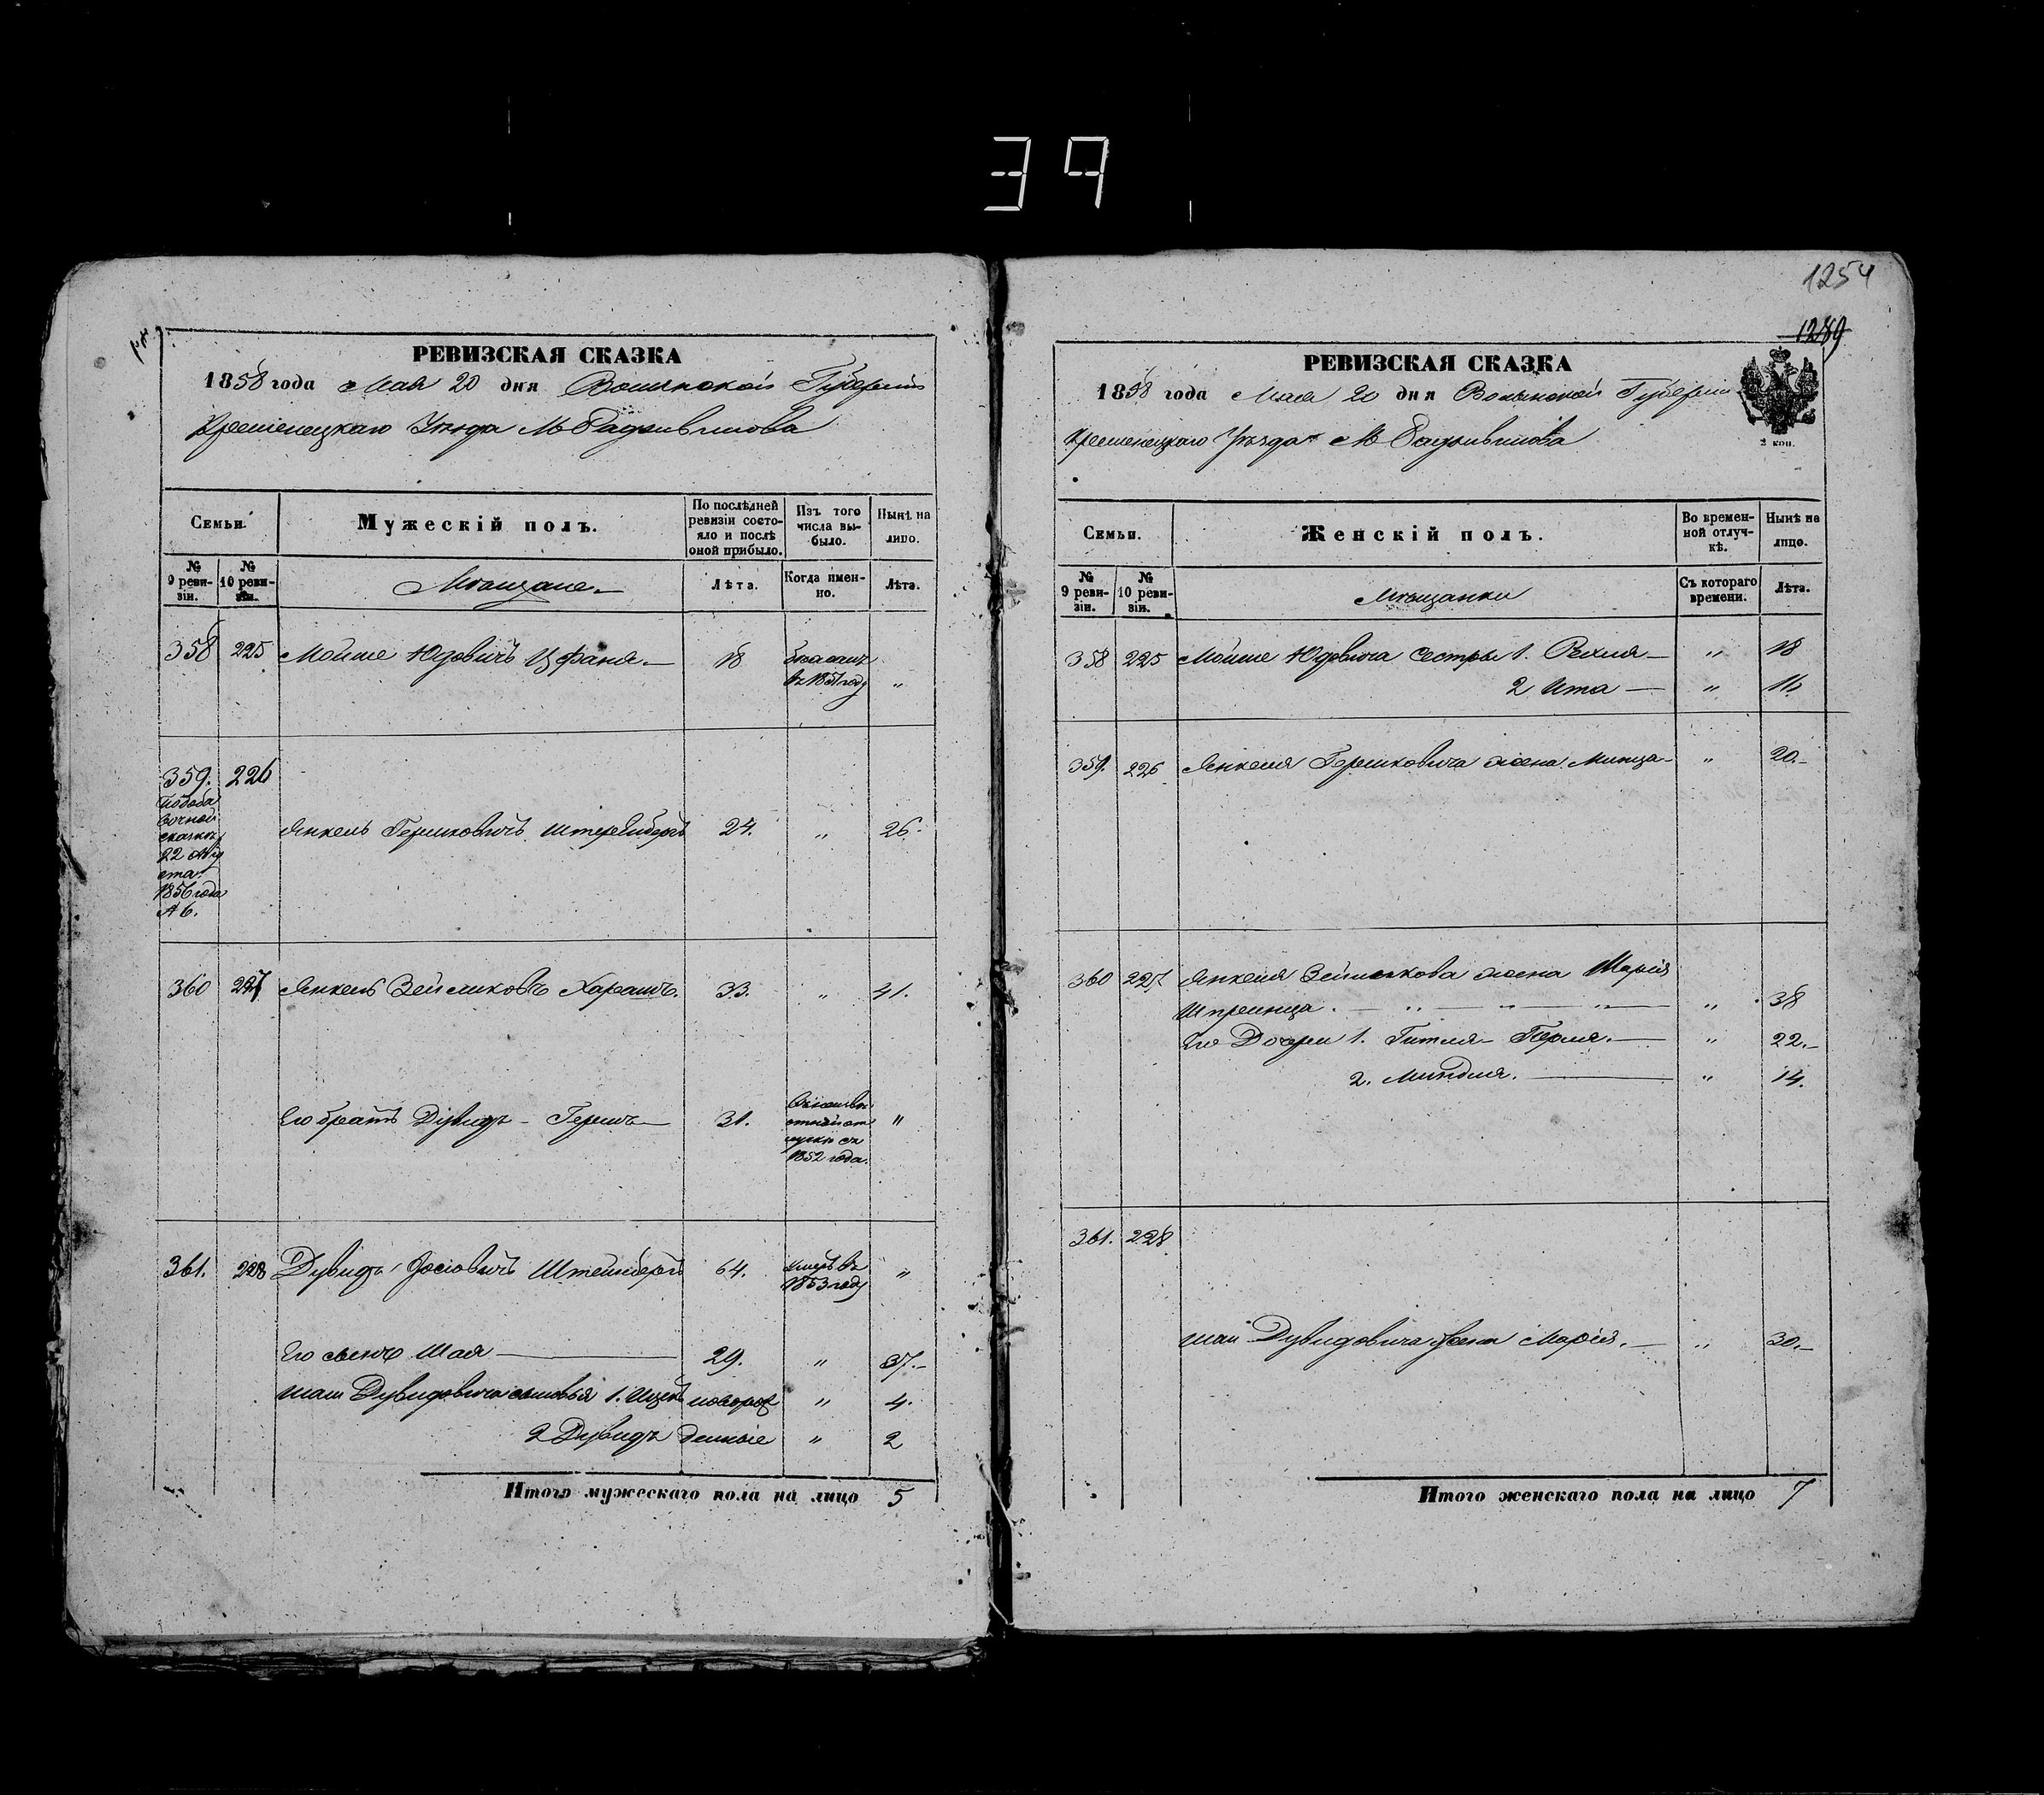 39
РЕВИЗСКАЯ СКАЗКА
1858 года Мая 20 дня Волынской Губерніи
Кременецкаго Уѣзда М Радзивилова
Семьи.
Мужескій полъ.
По послѣдней ревизіи состояло и послѣ оной прибыло.
Изъ того числа выбыло.
Нынѣ на лицо.
№ 9 ревизіи.
№ 10 ревизіи.
Мѣщане
Лѣта.
Когда именно.
Лѣта.
358 225 Мойше Юдовичъ Цфаня 18 въ 1851 году "
359. 226
сказкѣ
22 Авгу
ста
1856 года
№ 6.
Янкель Гершковичъ Штеренбергъ 24. " 26.
360 227 Янкель Зейликовъ Харашъ. 33. " 41.
Его братъ Дувидъ - Гершъ 31. "
1852 года.
361. 228 Дувидъ Іосіовичъ Штейнбергъ 64. умеръ въ 1853 году "
Его сынъ Шая 29. " 37.
Шаи Дувидовича сыновья 1. Ицекъ новорож " 4.
2 Дувидъ денные " 2
Итого мужескаго пола на лицо 5
1254
1289
РЕВИЗСКАЯ СКАЗКА
1858 года Мая 20 дня Волынской Губерніи
2 коп.
Кременецкаго Уѣзда М Радзивилова
Семьи.
Женскій полъ.
Во временной отлучкѣ.
Нынѣ на лицо.
№ 9 ревизіи.
№ 10 ревизіи.
Мѣщанки
Съ котораго времени.
Лѣта.
358 225 Мойше Юдовича сестры 1. Рехля " 18
2 Ита " 16
359. 226 Янкеля Гершковича жена Минца " 20.
360 227. Янкеля Зейликова жена Марія
Шпринца " 38
Его Дочери 1. Гитля - Перля. " 22.
2. Миндля. " 14.
361. 228
Шаи Дувидовича жена Марія. " 30.
Итого женскаго пола на лицо 7